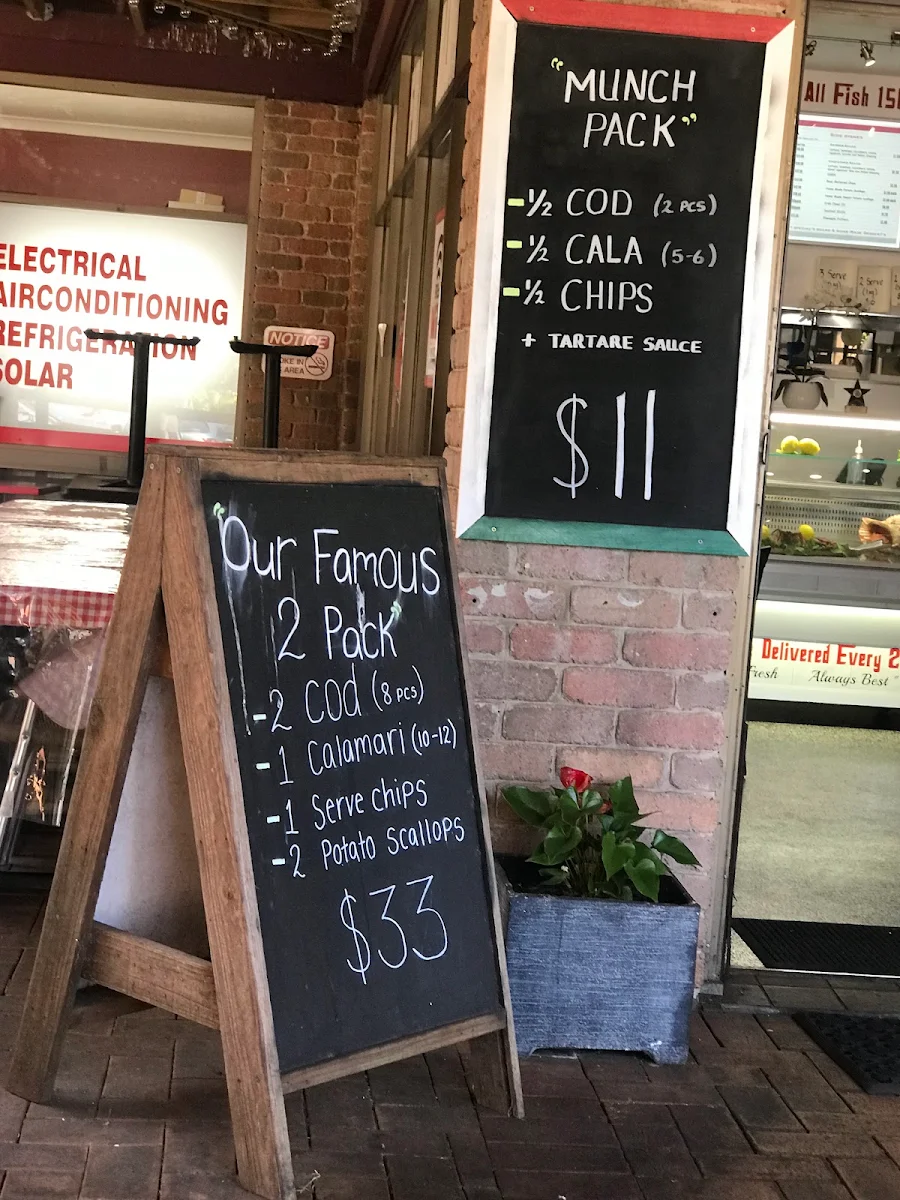 "MUNCH
PACK"
-½ COD (2 PCS)
-½ CALA (5-6)
-½ CHIPS
+ TARTARE SAUCE
$11
"Our Famous
2 Pack"
-2 COD (8 PCS)
-1 Calamari (10-12)
-1 Serve chips
-2 Potato Scallops
$33
ELECTRICAL
AIRCONDITIONING
REFRIGERATION
SOLAR
NOTICE
All Fish
3 Serve
2 Serve
Delivered Every
Always Best"